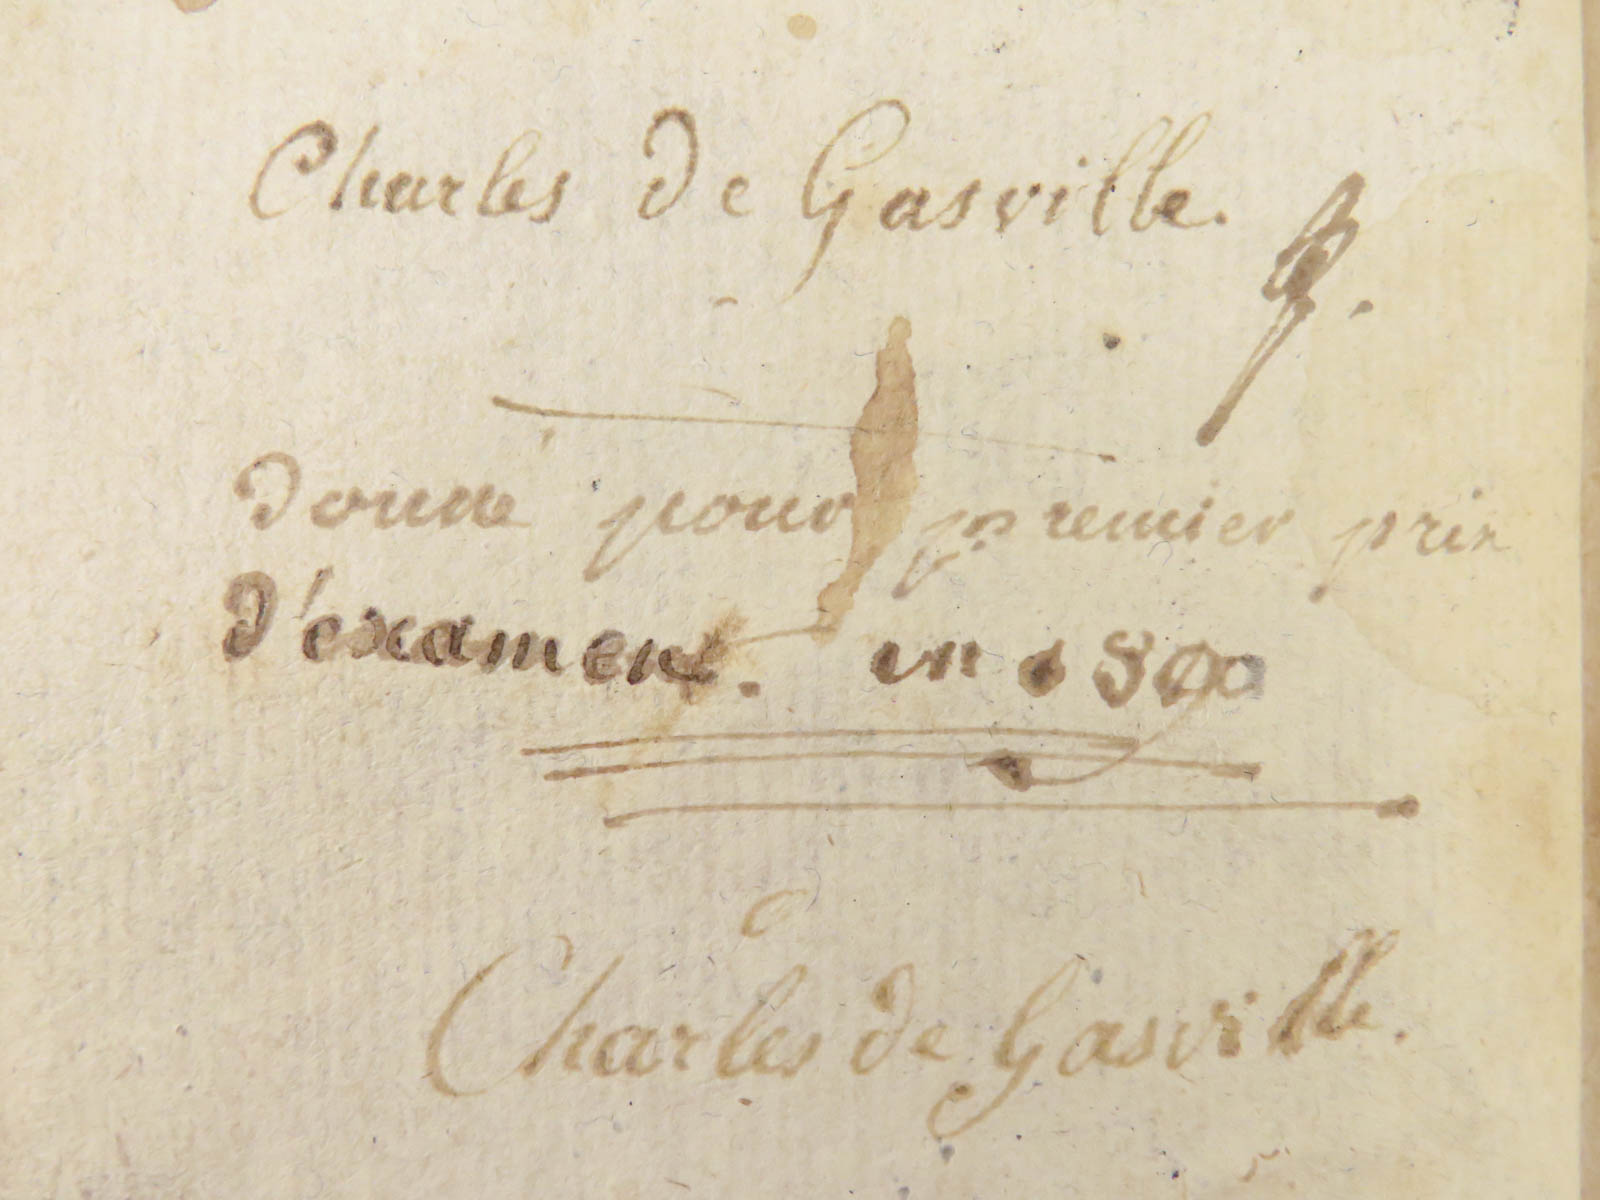 Charles de Gasville.
donné pour premier prix
d'examen. en 1800
Charles de Gasville.